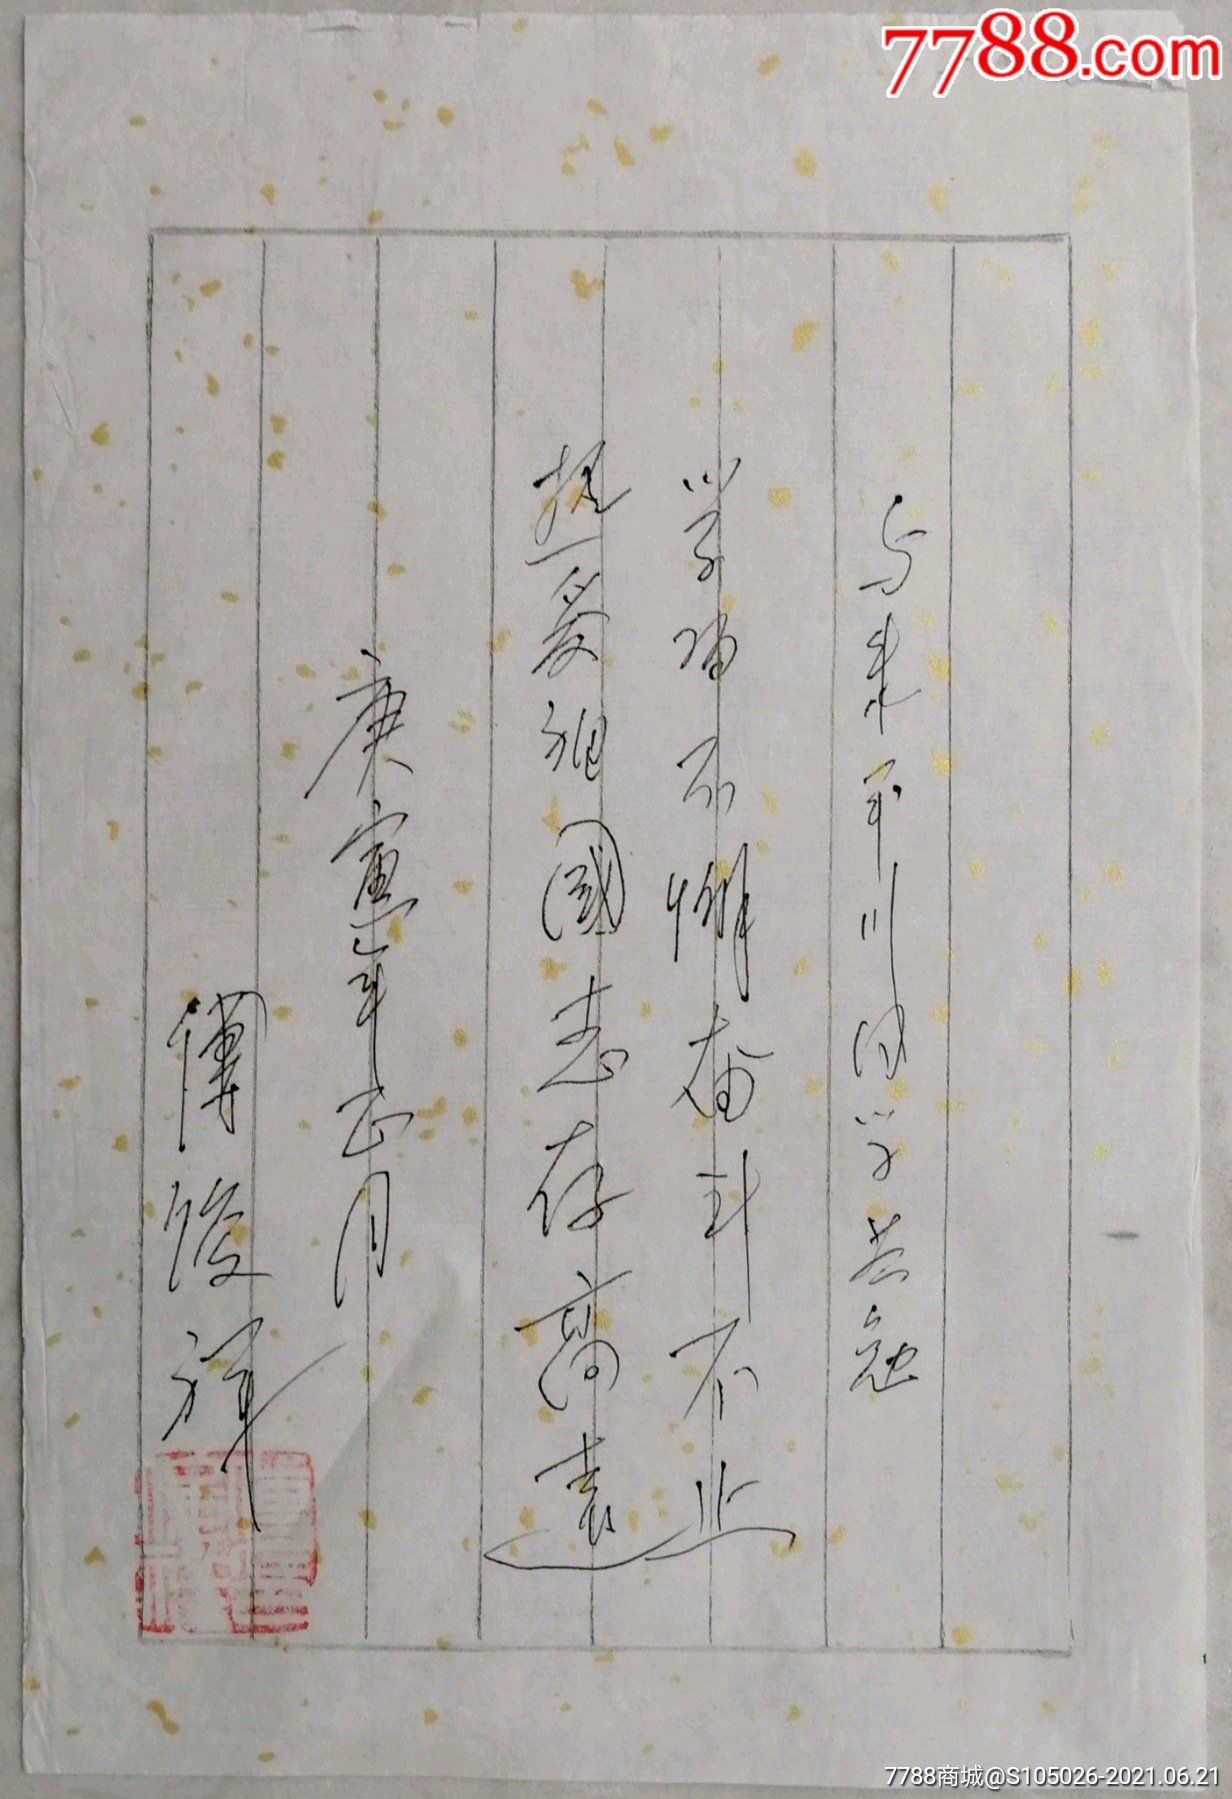 7788.com
与来平川同学共勉
学习不懈奋斗不止
热爱祖國志存高遠
庚寅年正月
傅俊祥
7788商城@S105026-2021.06.21